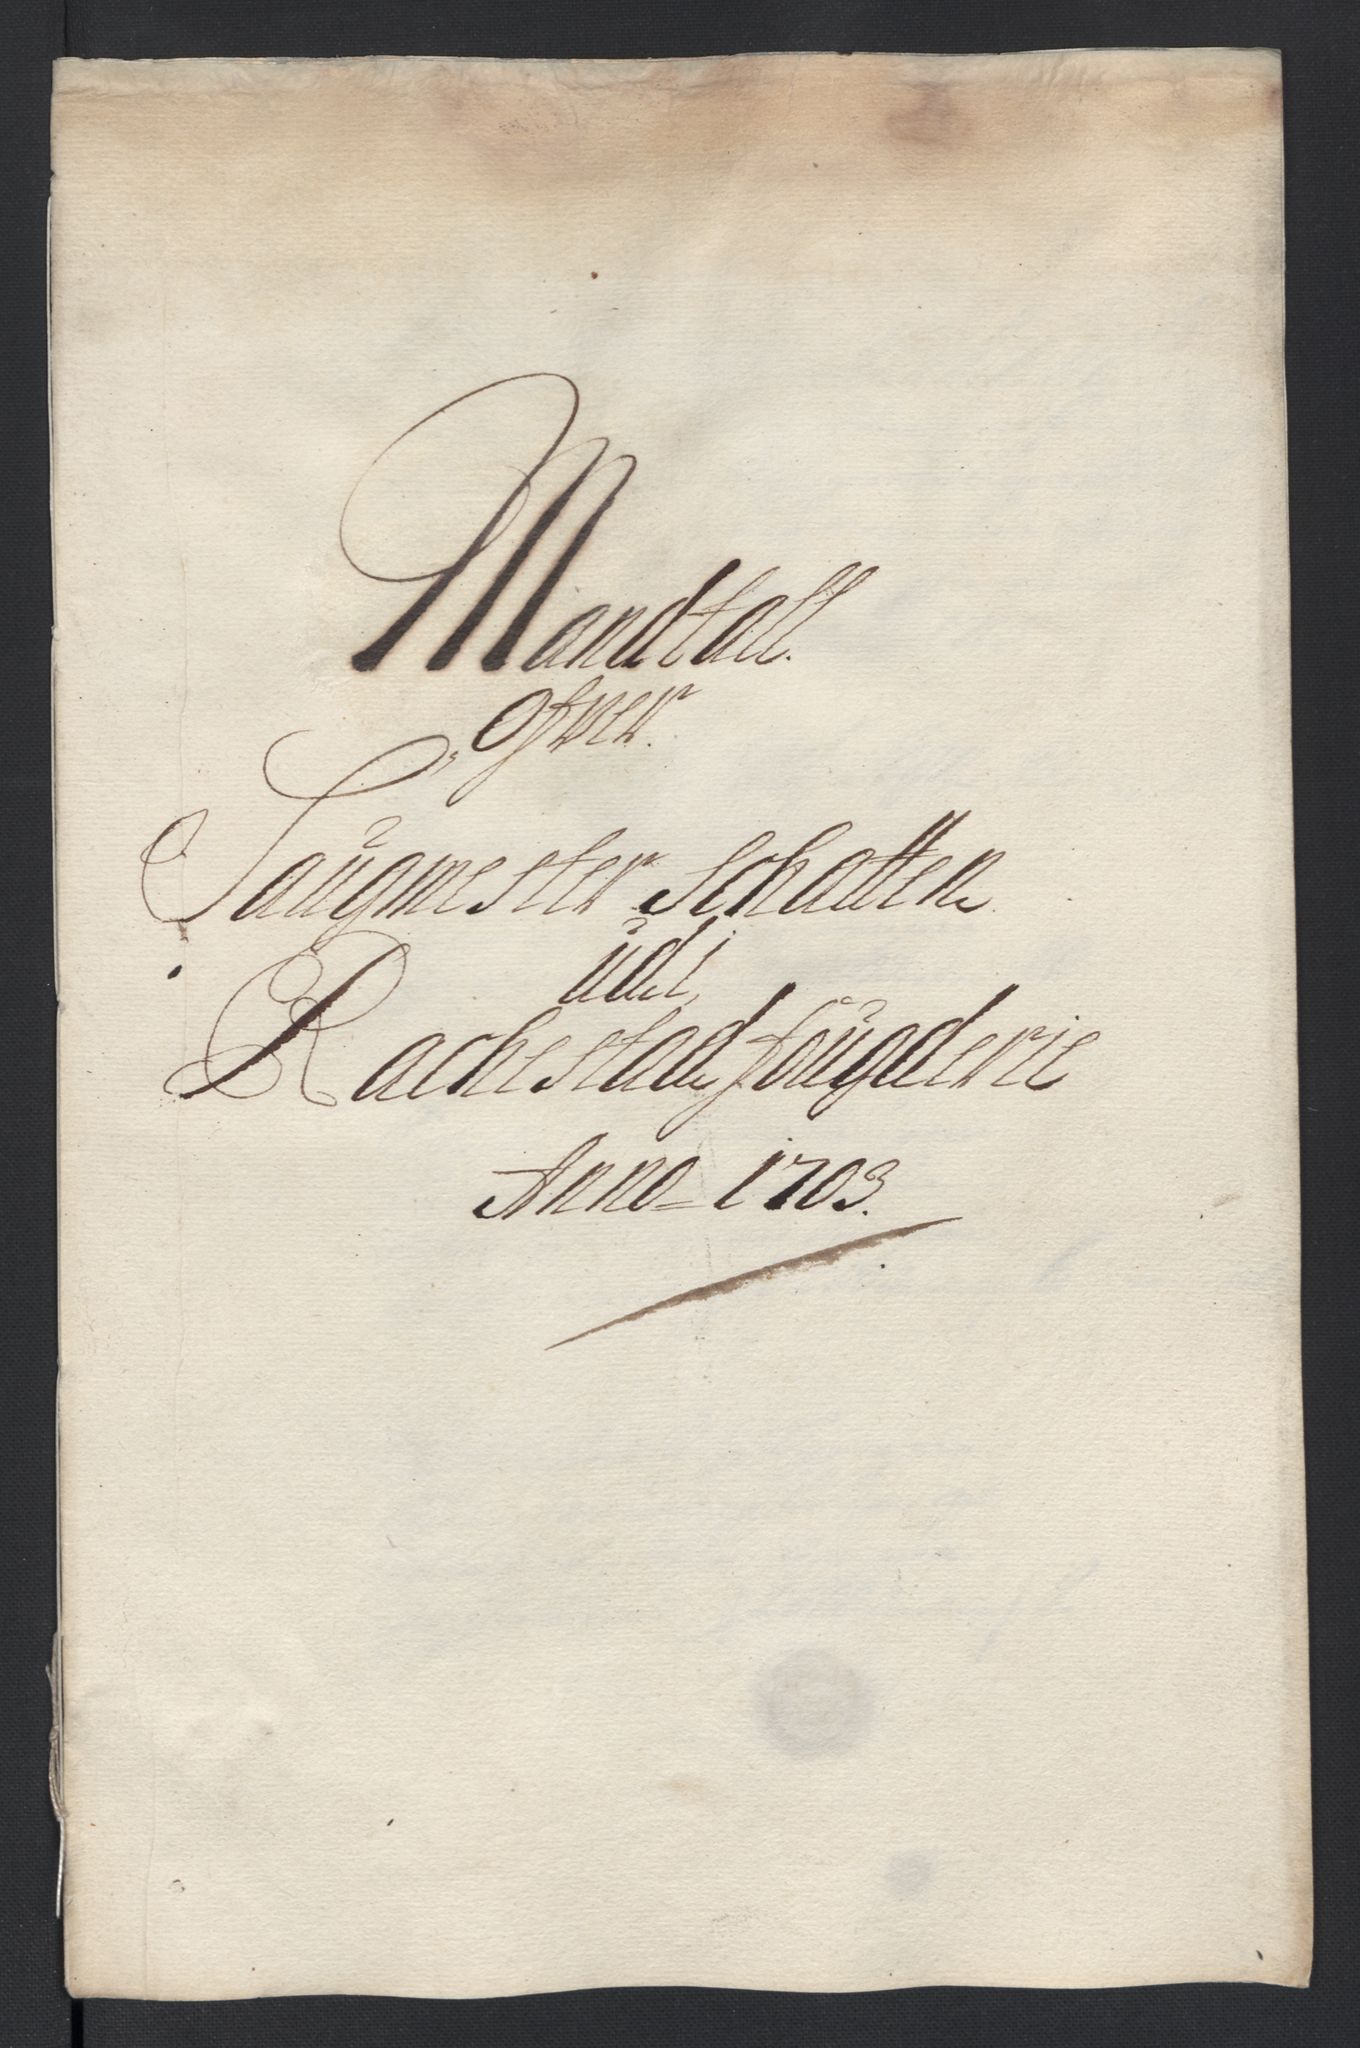 Mandtall
Ofver
Saugmester Schatten
udi
Rackestad fougderie
Anno = 1703.